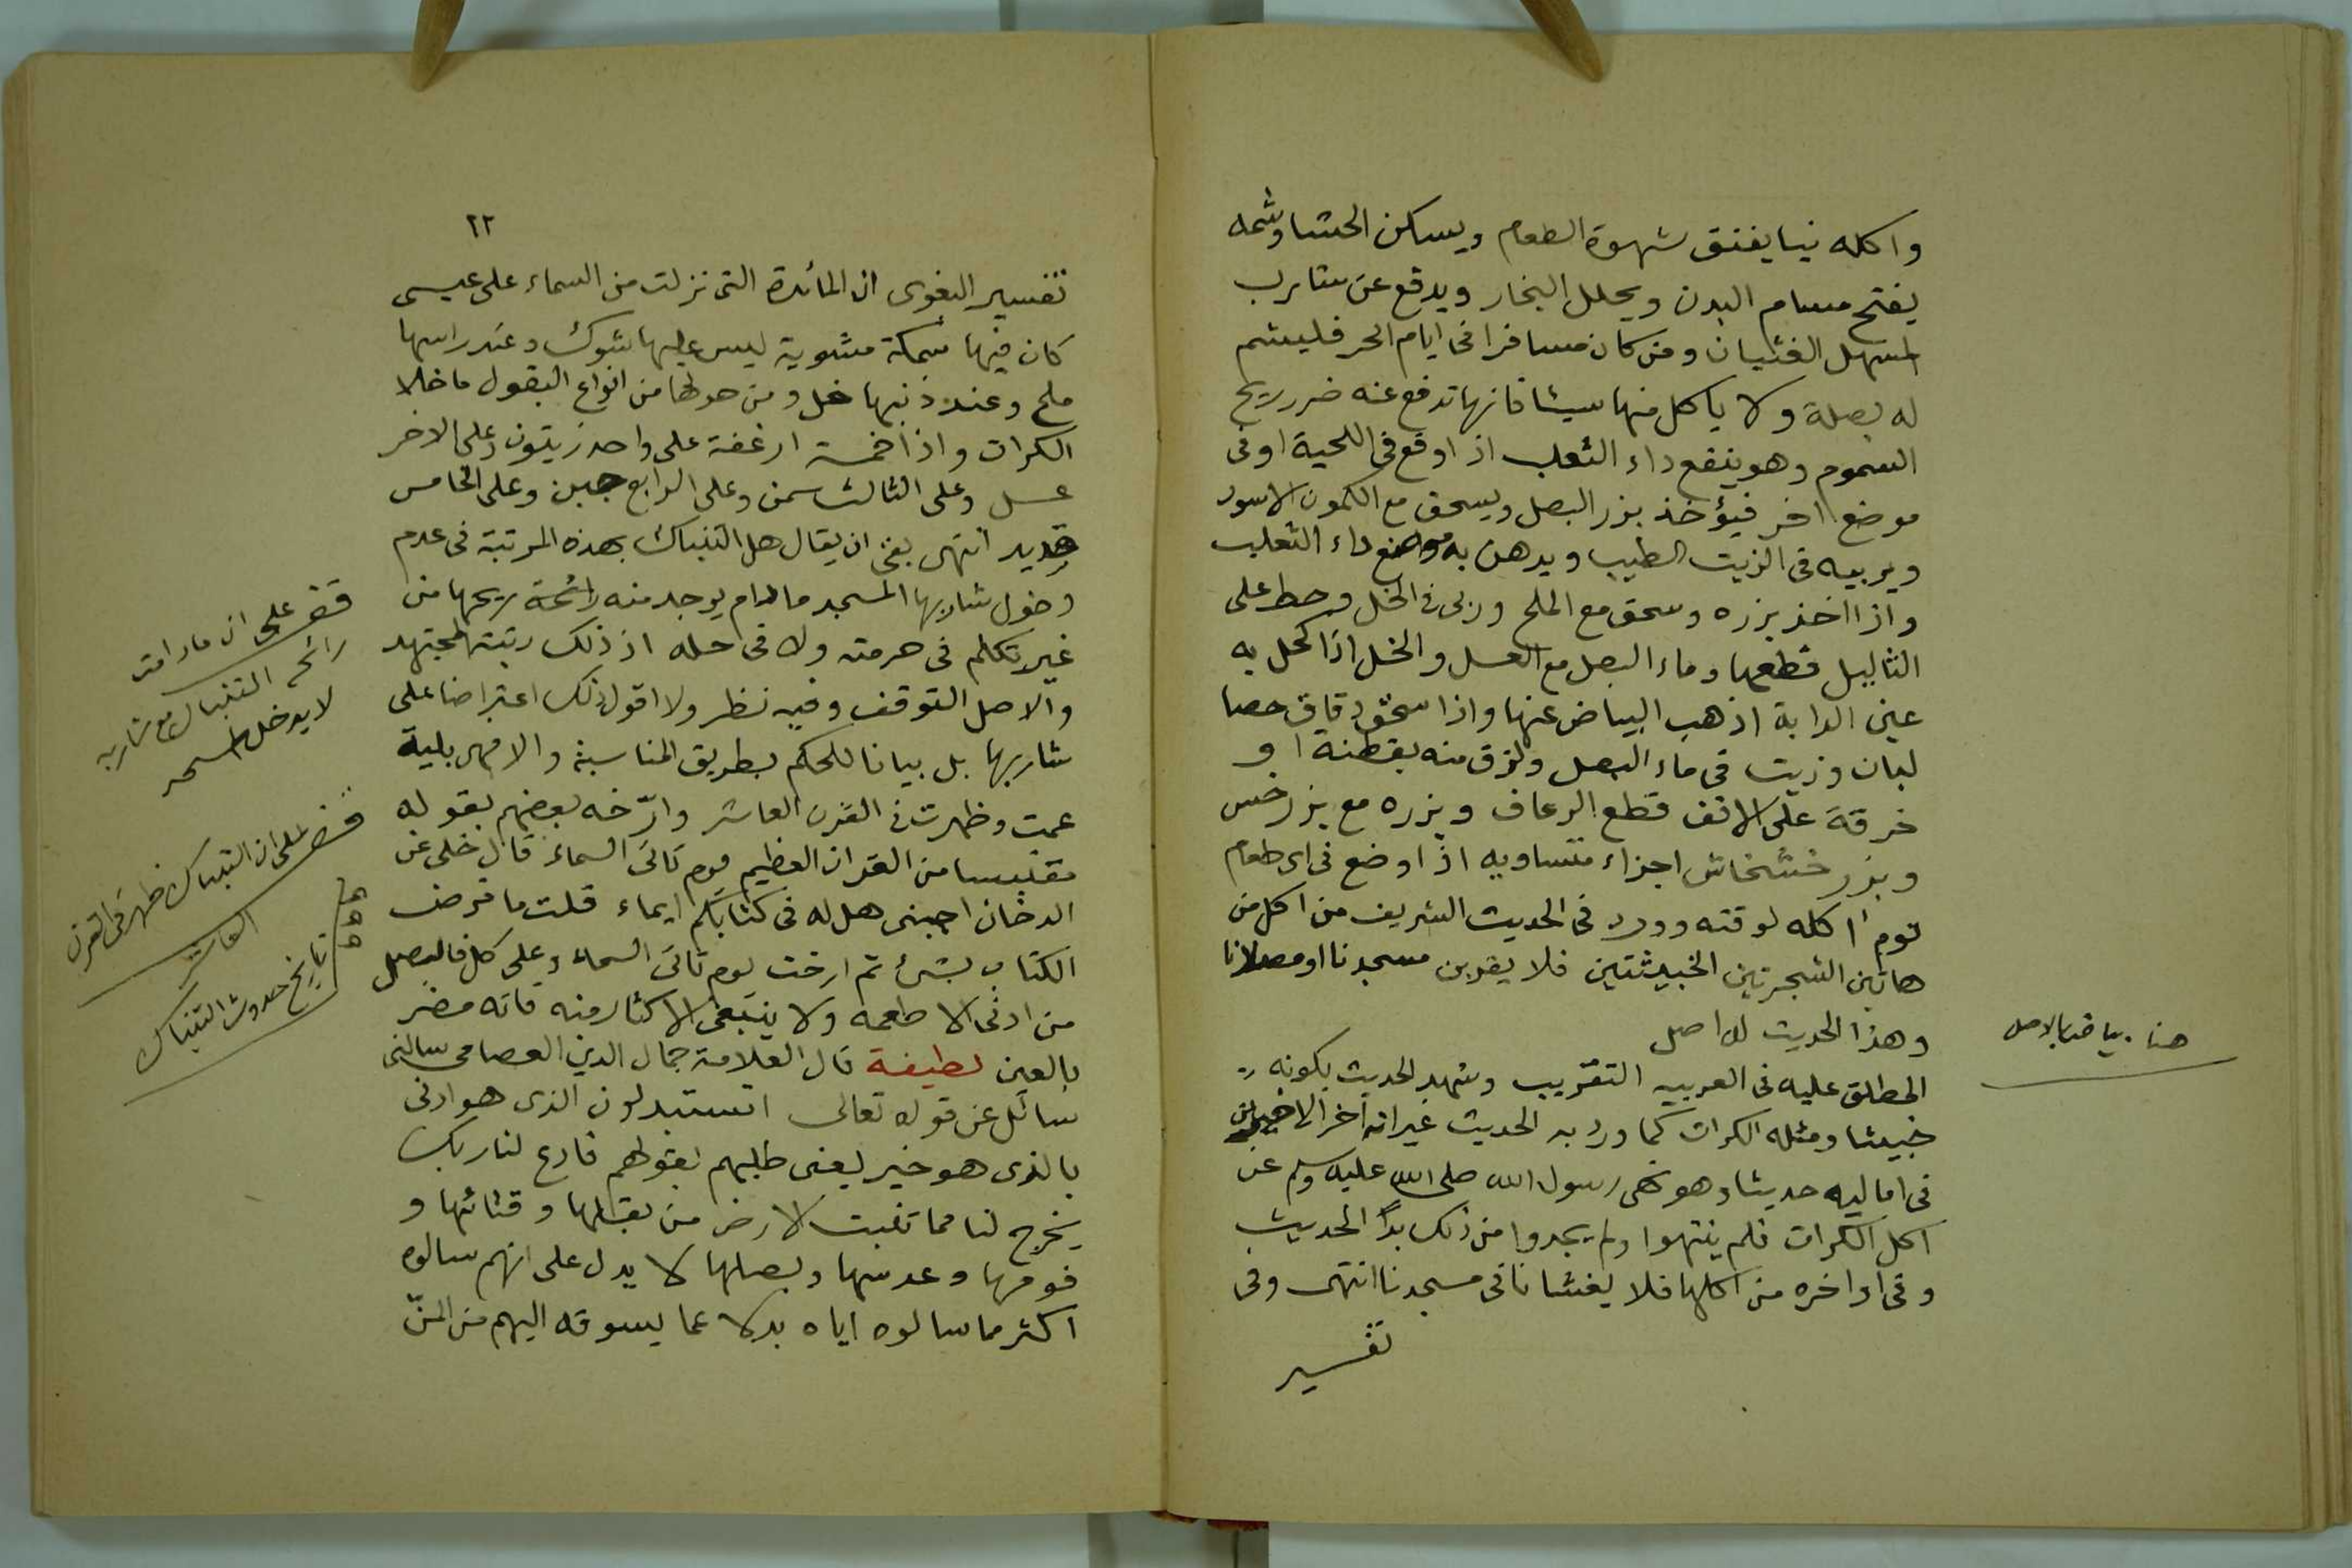 واكله نيا يفتق شهوة الطعام ويسكن الحشا وشمه
يفتح مسام البدن ويحلل البخار ويدفع عن شارب
المسهل الغثيان ومن كان مسافرا فى ايام الحر فليشم
له بصلة ولا ياكل منها شيئا فانها تدفع عنه ضرر ريح
السموم وهو ينفع داء الثعلب اذا وقع فى اللحية او فى
موضع اخر فيؤخذ بزر البصل ويسحق مع الكمون الاسود
ويربيه فى الزيت الطيب ويدهن به مواضع داء الثعلب
واذا اخذ بزره وسحق مع الملح وربى فى الخل وحط على
الثاليل قطعها وماء البصل مع العسل والخل اذا كحل به
عين الدابة اذهب البياض عنها واذا سحق دقاق حصا
لبان وزيت فى ماء البصل ولزق منه بقطنة او
خرقة على الانف قطع الرعاف وبزره مع بزر خس
وبزر خشخاش اجزاء متساويه اذا وضع فى اى طعام
نوم اكله لوقته وورد فى الحديث الشريف من اكل من
هاتين الشجرتين الخبيثتين فلا يقربن مسجدنا او مصلانا
وهذا الحديث له اصل
هنا بياض بالاصل
المطلق عليه فى العربيه التقريب وشهد الحديث بكونه
خبيثا ومثله الكرات كما ورد به الحديث غير انه اخر
فى اماليه حديثا وهو نهى رسول الله صلى الله عليه وسلم عن
اكل الكرات فلم ينتهوا ولم يجدوا من ذلك بدا الحديث
وفى اواخره من اكلها فلا يغشانا فى مسجدنا انتهى وفى
تفسير
٢٢
تفسير البغوى ان المائدة التى نزلت من السماء على عيسى
كان فيها سمكة مشوية ليس عليها شوك وعند راسها
ملح وعند ذنبها خل ومن حولها من انواع البقول ما خلا
الكرات واذا خمسة ارغفة على واحد زيتون وعلى الاخر
عسل وعلى الثالث سمن وعلى الرابع جبن وعلى الخامس
قديد انتهى بقى ان يقال هل التنباك بهذه المرتبة فى عدم
دخول شاربها المسجد مادام يوجد منه رائحة ريحها من
غير تكلم فى حرمته ولا فى حله اذ ذلك رتبة المجتهد
والاصل التوقف وفيه نظر ولا اقول ذلك اعتراضا على
شاربها بل بيانا للحكم بطريق المناسبة والا فهى بلية
عمت وظهرت فى القرن العاشر وارّخه بعضهم بقوله
مقتبسا من القران العظيم يوم تاتى السماء قال خلى عن
الدخان اجبنى هل له فى كتابكم ايماء قلت ما فرض
الكتاب بشئ ثم ارخت يوم تاتى السماء وعلى كل فالبصل
من ادنى الا طعمه ولا ينبغى الاكثار منه فانه مضر
بالعين لطيفة قال العلامة جمال الدين العصامى سالنى
سائل عن قوله تعالى اتستبدلون الذى هو ادنى
بالذى هو خير يعنى طلبهم بقولهم فادع لنا ربك
يخرج لنا مما تنبت الارض من بقلها وقثائها و
فومها وعدسها وبصلها لا يدل على انهم سالوه
اكثر مما سالوه اياه بدلا عما يسوقه اليهم من المنّ
قف على ان ما دامت
رائحة التنباك مع شاربه
لا يدخل المسجد
قف على ان التنباك ظهر فى القرن
العاشر
تاريخ حدوث التنباك